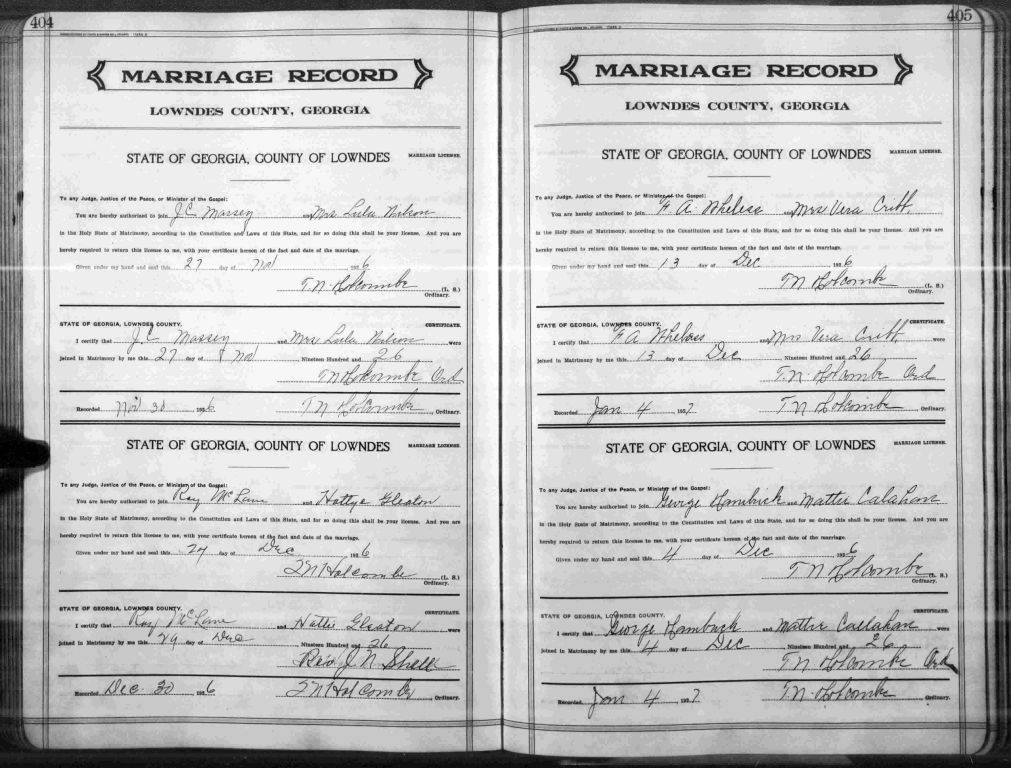 404
MARRIAGE RECORD
LOWNDES COUNTY, GEORGIA
STATE OF GEORGIA, COUNTY OF LOWNDES MARRIAGE LICENSE.
To any Judge, Justice of the Peace, or Minister of the Gospel:
You are hereby authorized to join J.C. Massey and Mrs Lula Wilson
in the Holy State of Matrimony, according to the Constitution and Laws of this State, and for so doing this shall be your license. And you are
hereby required to return this license to me, with your certificate hereon of the fact and date of the marriage.
Given under my hand and seal this 27 day of Nov 1926
T.N. Holcombe (L. S.)
Ordinary.
STATE OF GEORGIA, LOWNDES COUNTY. CERTIFICATE.
I certify that J.C. Massey and Mrs Lula Wilson were
joined in Matrimony by me this 27 day of Nov Nineteen Hundred and 26
T.N Holcombe Ord
Recorded Nov 30 1926 T.N Holcombe, Ordinary.
STATE OF GEORGIA, COUNTY OF LOWNDES MARRIAGE LICENSE.
To any Judge, Justice of the Peace, or Minister of the Gospel:
You are hereby authorized to join Roy McLane and Hattye Gleaton
in the Holy State of Matrimony, according to the Constitution and Laws of this State, and for so doing this shall be your license. And you are
hereby required to return this license to me, with your certificate hereon of the fact and date of the marriage.
Given under my hand and seal this day of Dec 1926
T.N Holcombe (L. S.)
Ordinary.
STATE OF GEORGIA, LOWNDES COUNTY. CERTIFICATE.
I certify that Roy McLane and Hattie Gleaton were
joined in Matrimony by me this 29 day of Dec Nineteen Hundred and 26
Rev. J. N. Shell
Recorded Dec 30 1926 T.N Holcombe, Ordinary.
405
MARRIAGE RECORD
LOWNDES COUNTY, GEORGIA
STATE OF GEORGIA, COUNTY OF LOWNDES MARRIAGE LICENSE.
To any Judge, Justice of the Peace, or Minister of the Gospel:
You are hereby authorized to join F. A. Wheless and Mrs Vera Cribb
in the Holy State of Matrimony, according to the Constitution and Laws of this State, and for so doing this shall be your license. And you are
hereby required to return this license to me, with your certificate hereon of the fact and date of the marriage.
Given under my hand and seal this 13 day of Dec 1926
T.N Holcombe (L. S.)
Ordinary.
STATE OF GEORGIA, LOWNDES COUNTY. CERTIFICATE.
I certify that F A Wheless and Mrs Vera Cribb were
joined in Matrimony by me this 13 day of Dec Nineteen Hundred and 26
T.N. Holcombe Ord
Recorded Jan 4 1927 T.N Holcombe, Ordinary.
STATE OF GEORGIA, COUNTY OF LOWNDES MARRIAGE LICENSE.
To any Judge, Justice of the Peace, or Minister of the Gospel:
You are hereby authorized to join George Hambuck and Mattie Calahan
in the Holy State of Matrimony, according to the Constitution and Laws of this State, and for so doing this shall be your license. And you are
hereby required to return this license to me, with your certificate hereon of the fact and date of the marriage.
Given under my hand and seal this 4 day of Dec 1926
T.N Holcombe (L. S.)
Ordinary.
STATE OF GEORGIA, LOWNDES COUNTY. CERTIFICATE.
I certify that George Hambuck and Mattie Callahan were
joined in Matrimony by me this 4 day of Dec Nineteen Hundred and 26
T.N Holcombe Ord
Recorded Jan 4, 1927 T.N. Holcombe, Ordinary.